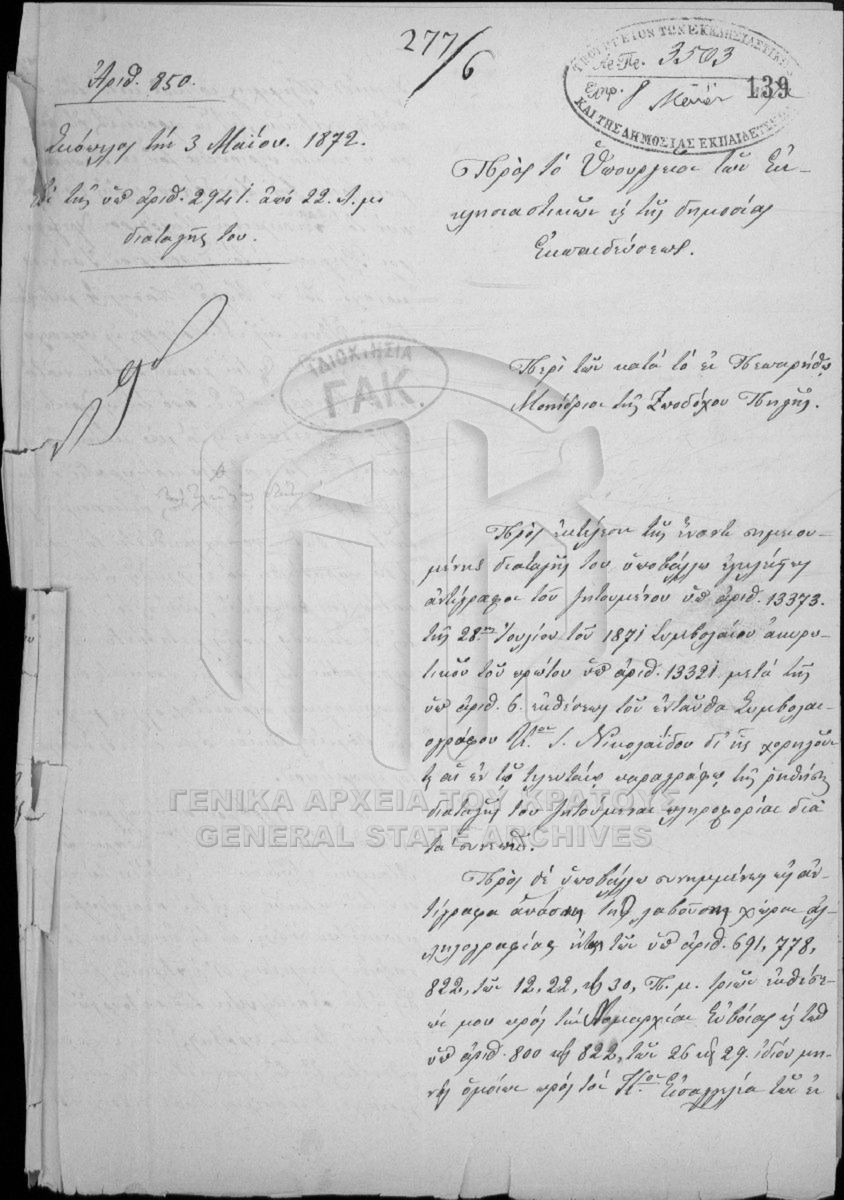 277/6
ΥΠΟΥΡΓΕΙΟΝ ΤΩΝ ΕΚΚΛΗΣΙΑΣΤΙΚΩΝ
Ἀρ. Πρ. 3503
139
8 Μαΐου
ΚΑΙ ΤΗΣ ΔΗΜΟΣΙΑΣ ΕΚΠΑΙΔΕΥΣΕΩΣ
Ἀριθ. 850.
Σκόπελος τῇ 3 Μαΐου 1872.
τῆς ὑπ' ἀριθ. 2941. ἀπὸ 22.
διαταγῆς του.
Πρὸς τὸ Ὑπουργεῖον τῶν Ἐκ-
κλησιαστικῶν κ τῆς δημοσίας
Ἐκπαιδεύσεως.
Περὶ τῶν κατὰ τὸ ἐν Πεπαρήθῳ
Μονύδριον τῆς Ζωοδόχου Πηγῆς.
ΙΔΙΟΚΤΗΣΙΑ
ΓΑΚ.
Πρὸς ἐκτέλεσιν τῆς ἔναντι σημειου-
μένης διαταγῆς του ὑποβάλλω
ἀντίγραφον τοῦ ζητουμένου ὑπ' ἀριθ. 13373.
τῆς 28ης Ἰουλίου τοῦ 1871 Συμβολαίου ἀκυρω-
τικοῦ τοῦ πρώτου ὑπ' ἀριθ. 13321. μετὰ τῆς
ὑπ' ἀριθ. 6. ἐκθέσεως τοῦ ἐνταῦθα Συμβολαι-
ογράφου Κου Ι. Νικολαΐδου δι' ἧς χορηγοῦν-
αἱ ἐν τῷ τελευταίῳ παραγράφῳ τῆς ῥηθείσης
διαταγῆς του ζητούμεναι πληροφορίαι διὰ
τὰ
ΓΕΝΙΚΑ ΑΡΧΕΙΑ ΤΟΥ ΚΡΑΤΟΥΣ
GENERAL STATE ARCHIVES
Πρὸς δὲ ὑποβάλλω συνημμένως εἰς ἀν-
τίγραφα ἅπασαν τὴν λαβοῦσαν χώραν ἀλ-
ληλογραφίαν ἤτοι τῶν ὑπ' ἀριθ. 691, 778,
822, τῶν 12, 22, κ 30, Π. μ. τριῶν ἐκθέσε-
ών μου πρὸς τὴν Νομαρχίαν Εὐβοίας κ τῶν
ὑπ' ἀριθ. 800 κ 822, τῶν 26 κ 29 ἰδίου μη-
νὸς ὁμοίων πρὸς τὸν Κον Εἰσαγγελέα τῶν ἐν